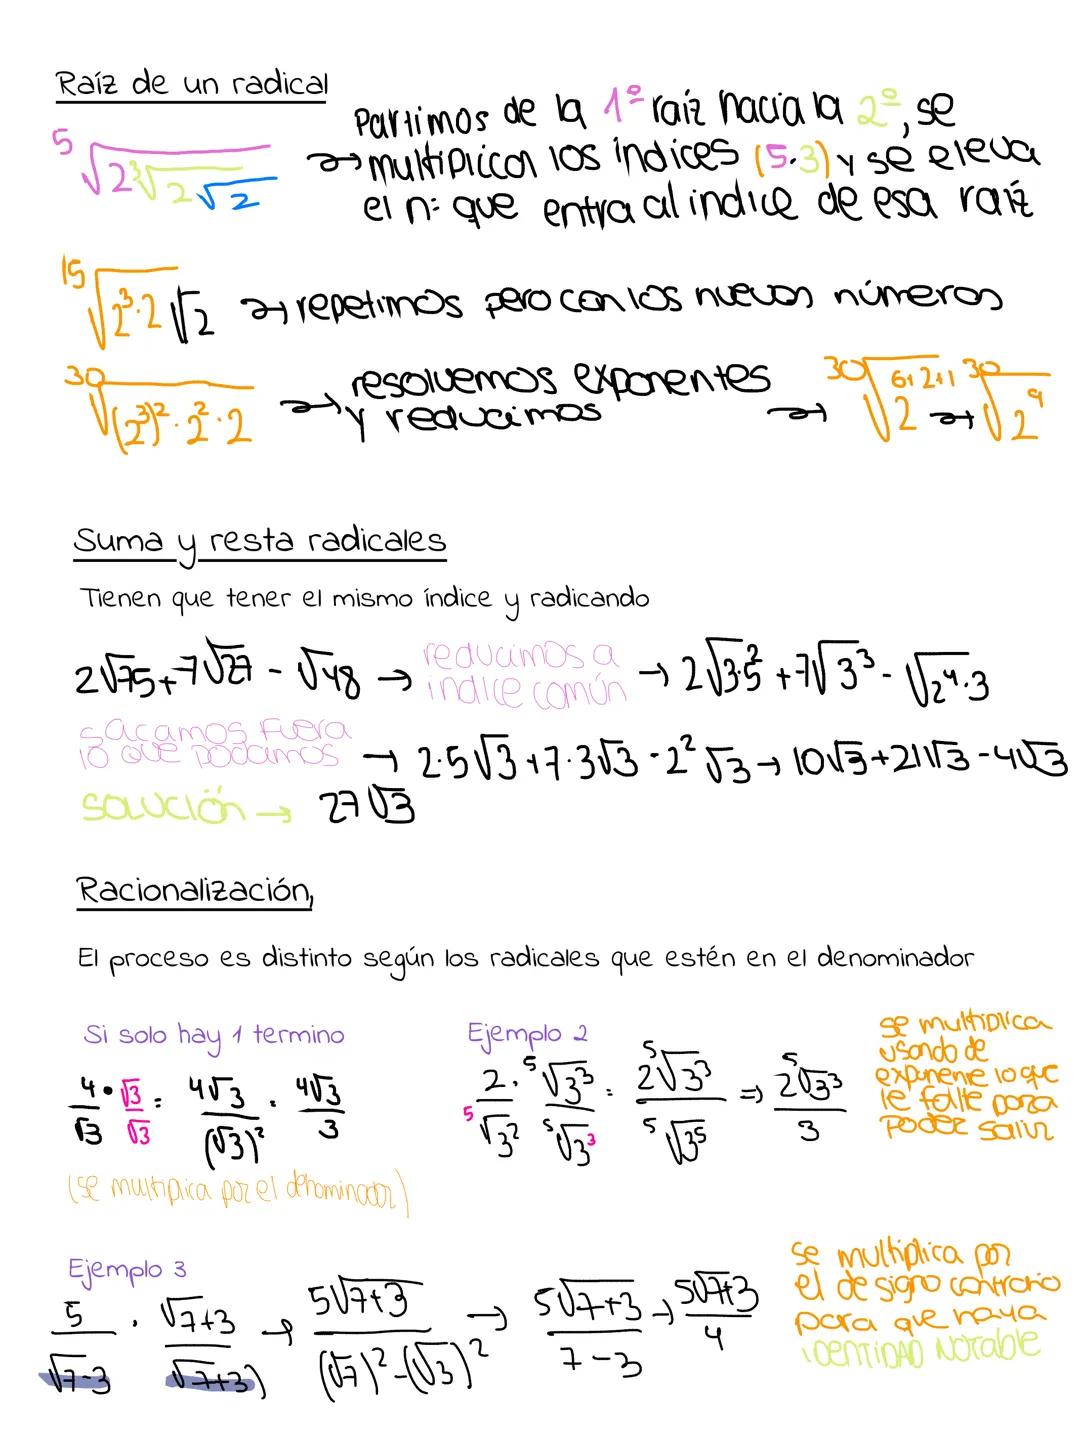 Raíz de un radical
⁵√(2 ³√(2 √2))
Partimos de la 1º raíz hacia la 2º, se
→ multiplican los índices (5·3) y se eleva
el nº que entra al indice de esa raíz
¹⁵√(2³·2 √2) → repetimos pero con los nuevos números
³⁰√((2³)²·2²·2) → resolvemos exponentes
y reducimos → ³⁰√2⁶⁺²⁺¹ → ³⁰√2⁹
Suma y resta radicales
Tienen que tener el mismo índice y radicando
2√75 + 7√27 - √48 → reducimos a
indice común → 2√3·5² + 7√3³ - √2⁴·3
sacamos fuera
lo que podamos → 2·5√3 + 7·3√3 - 2²√3 → 10√3 + 21√3 - 4√3
SOLUCIÓN → 27√3
Racionalización,
El proceso es distinto según los radicales que estén en el denominador
Si solo hay 1 termino
4/√3 · √3/√3 = 4√3/(√3)² = 4√3/3
(se multiplica por el denominador)
Ejemplo 2
2/⁵√3² · ⁵√3³/⁵√3³ = 2⁵√3³/⁵√3⁵ => 2⁵√3³/3
se multiplica
usando de
exponente lo que
le falte para
poder salir
Ejemplo 3
5/√7-3 · √7+3/√7+3) → 5√7+3/(√7)²-(√3)² → 5√7+3/7-3 → 5√7+3/4
se multiplica por
el de signo contrario
para que haya
IDENTIDAD Notable